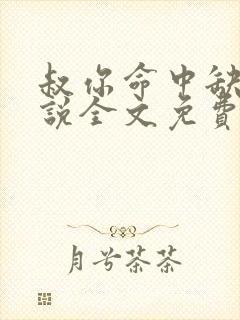 叔你命中缺
說全文免費
月兮茶茶